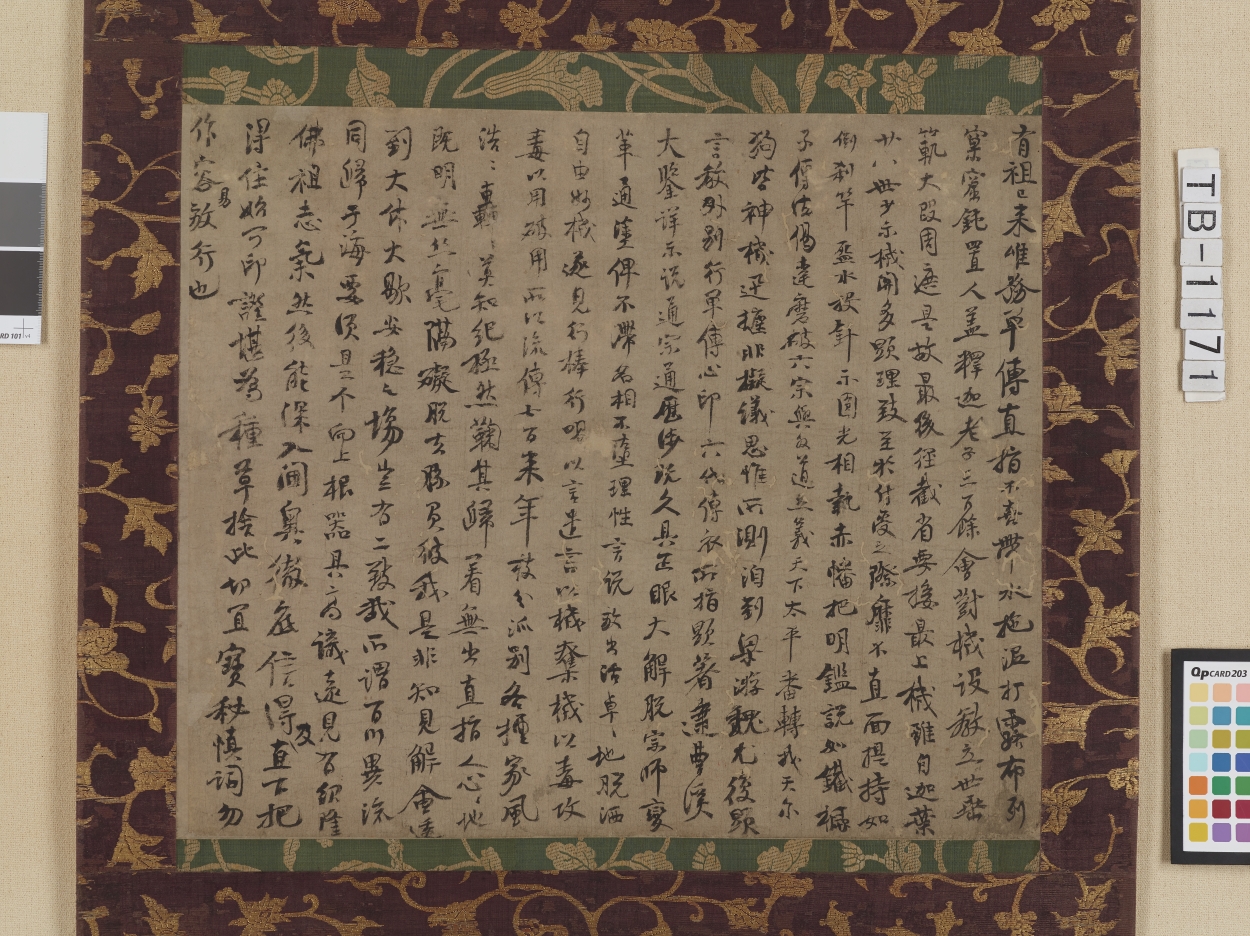 有祖已来唯務單傳直指不喜帶水拖泥打露布列
窠窟鈍置人蓋釋迦老子三百餘會對機設教立世垂
範大段周遮是故最後徑截省要接最上機雖自迦葉
廿八世少示機關多顯理致至於付受之際靡不直面提持如
倒刹竿盋水投針示圓光相執赤幡把明鑑説如鐵橛
子傳法偈達磨破六宗與外道立義天下太平番轉我天尔
狗皆神機迅捷非擬議思惟所測洎到梁游魏尤復顯
言教外別行單傳心印六代傳衣所指顯著逮曹溪
大鑒詳示説通宗通歷涉既久具正眼大解脱宗師變
革通塗俾不滯名相不墮理性言説放出活卓〻地脱洒
自由妙機遂見行棒行喝以言遣言以機奪機以毒攻
毒以用破用所以流傳七百来年枝分派別各擅家風
浩〻轟〻莫知紀極然鞠其歸著無出直指人心〻地
既明無絲毫隔礙脱去勝負彼我是非知見解會透
到大休大歇安穩之場豈有二致哉所謂百川異流
同歸于海要須是个向上根器具高識遠見有紹隆
佛祖志氣然後能深入閫奧徹底信得及直下把
得住始可印證堪為種草捨此切宜寶秘慎詞勿
作容易放行也
TB-1171
QpCARD 203
CARD 101